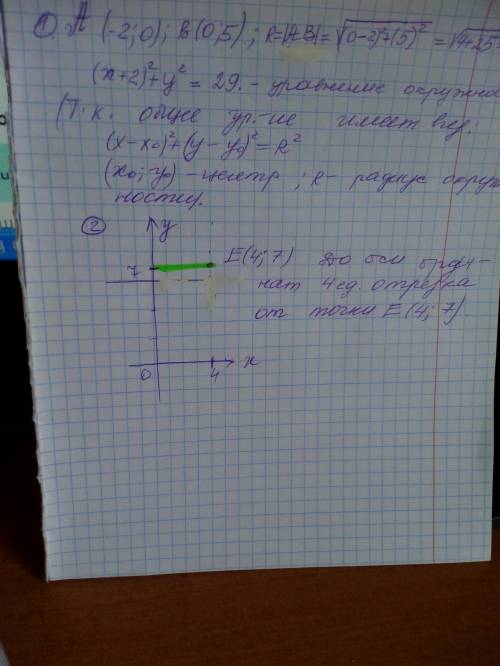 ① A (-2; 0); B (0; 5); R=|AB|=√(0-2)²+(5)² = √4+25
(x+2)²+y² = 29. - уравнение окружно
(Т.к. общее ур-ие имеет вид:
(x-x₀)²+(y-y₀)²=R²
(x₀; y₀) - центр; R - радиус окруж
ности).
② y
7 E(4; 7) До оси орди-
нат 4 ед. отрезка
от точки E(4; 7).
0 4 x